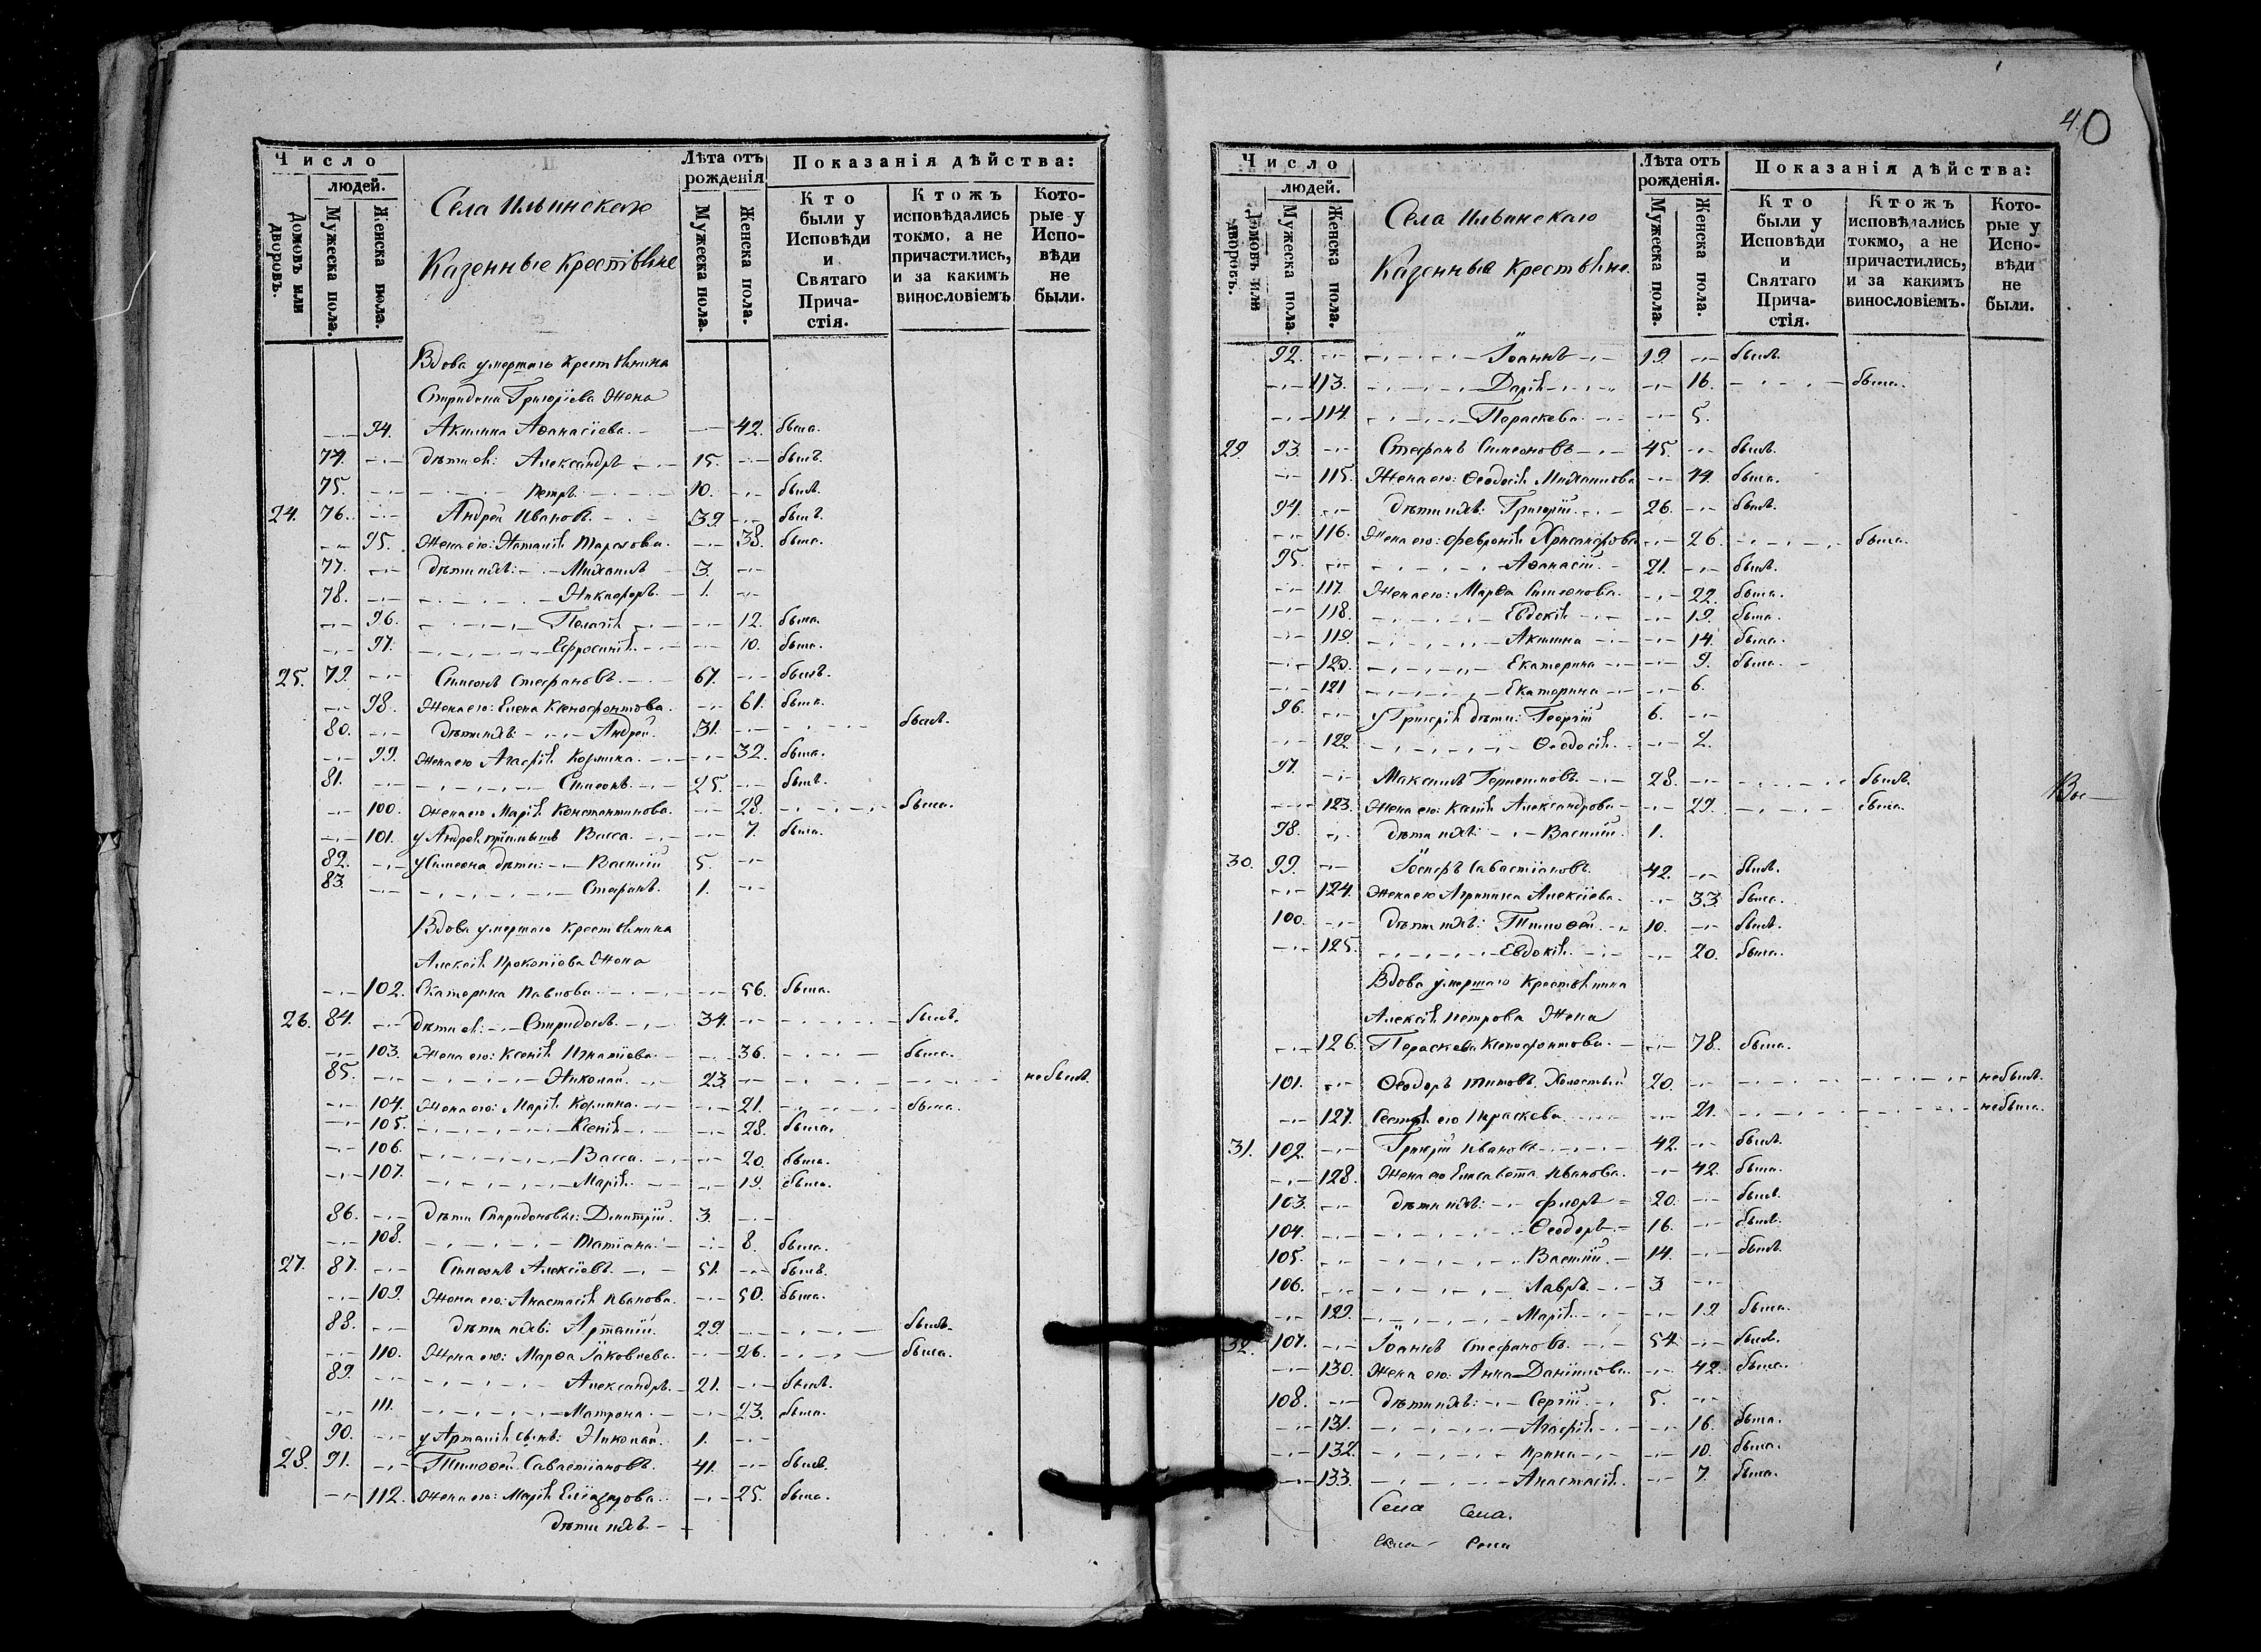 Число
людей.
Домовъ или дворовъ.
Мужеска пола.
Женска пола.
Села Ильинскаго
Казенные Крестьяне
Лѣта отъ рожденія
Мужеска пола.
Женска пола.
Показанія дѣйства:
Кто были у Исповѣди и Святаго Прича-стія.
Ктожъ исповѣдались токмо, а не причастились, и за какимъ винословіемъ
Кото-рые у Испо-вѣди не были.
Вдова умершаго Крестьянина
Спиридона Григоріева Жена
94. Акилина Аѳанасіева. 42. была.
74. дѣти ея: Александръ 15. былъ.
75. Петръ 10. былъ.
24. 76. Андрей Ивановъ. 39. былъ.
95. Жена его: Наталія Тарасова. 38. была.
77. дѣти ихъ: Михаилъ 3.
78. Никифоръ. 1.
96. Пелагія 12. была.
97. Ефросинія. 10. была.
25. 79. Симеонъ Стефановъ. 67. былъ.
98. Жена его: Елена Ксенофонтова. 61. была.
80. дѣти ихъ: Андрей. 31. былъ.
99. Жена его Агафія Козмина. 32. была.
81. Симеонъ. 25. былъ.
100. Жена его Марія Константинова. 28. была.
101. у Андрея пріимышъ Васса. 7. была.
82. у Симеона дѣти: Василій 5.
83. Стефанъ. 1.
Вдова умершаго Крестьянина
Алексія Прокопіева Жена
102. Екатерина Павлова. 56. была.
26. 84. дѣти ея: Спиридонъ. 34. былъ.
103. Жена его: Ксенія Игнатіева. 36. была.
85. Николай. 23 небылъ.
104. Жена его: Марія Козмина. 21. была.
105. Ксенія 28. была.
106. Васса. 20. была.
107. Марія. 19. была.
86. дѣти Спиридоновы: Димитрій. 3.
108. Татіана. 8. была.
27. 87. Симеонъ Алексіевъ. 51. былъ.
109. Жена его: Анастасія Иванова. 50. была.
88. дѣти ихъ: Артемій. 29. былъ.
110. Жена его: Марѳа Іаковлева. 26. была.
89. Александръ. 21. былъ.
111. Матрона. 23. была.
90. у Артемія сынъ: Николай. 1.
28. 91. Тимоѳей Савастіановъ. 41. былъ.
112. Жена его: Марія Еліазарова. 25. была.
дѣти ихъ
40
Число
людей.
Домовъ или дворовъ.
Мужеска пола.
Женска пола.
Села Ильинскаго
Казенные Крестьяне.
Лѣта отъ рожденія.
Мужеска пола.
Женска пола.
Показанія дѣйства:
Кто были у Исповѣди и Святаго Прича-стія.
Ктожъ исповѣдались токмо, а не причастились, и за какимъ винословіемъ.
Кото-рые у Испо-вѣди не были.
92. Іоаннъ 19. былъ.
113. Дарія 16. была.
114. Параскева. 5.
29. 93. Стефанъ Симеоновъ 45. былъ.
115. Жена его: Ѳеодосія Михаилова 44. была.
94. дѣти ихъ: Григорій. 26. былъ.
116. Жена его: Февронія Хрисанфова 26. была.
95. Аѳанасій. 21. былъ.
117. Жена его: Марѳа Симеонова. 22. была.
118. Евдокія 19. была.
119. Акилина 14. была.
120. Екатерина 9. была.
121 Екатерина 6.
96. у Григорія дѣти: Георгій 6.
122. Ѳеодосія. 2.
97. Максимъ 28. былъ.
123. Жена его: Ксенія Александрова 29. была.
98. дѣти ихъ: Василій. 1.
30. 99. Іосифъ Савастіановъ. 42. былъ.
124. Жена его Агрипина Алексіева. 33. была.
100. дѣти ихъ: Тимоѳей. 10. былъ.
125. Евдокія. 20. была.
Вдова умершаго Крестьянина
Алексія Петрова Жена
126. Параскева Ксенофонтова. 78. была.
101. Ѳеодоръ Титовъ. Холостый 20. небылъ.
127. Сестра его Параскева 21. небыла.
31. 102. Григорій Ивановъ 42. былъ.
128. Жена его Елисавета Иванова. 42. была.
103. дѣти ихъ: Флоръ 20. былъ.
104. Ѳеодоръ 16. былъ.
105. Василій. 14. былъ.
106. Лавръ. 3
129. Марія. 12. была.
32. 107. Іоаннъ Стефановъ. 54 былъ.
130. Жена его: Анна Даніилова. 42. была.
108. дѣти ихъ: Сергій. 5.
131. Агафія 16. была.
132. Ирина 10. была.
133. Анастасія. 7. была.
Села Села.
Села